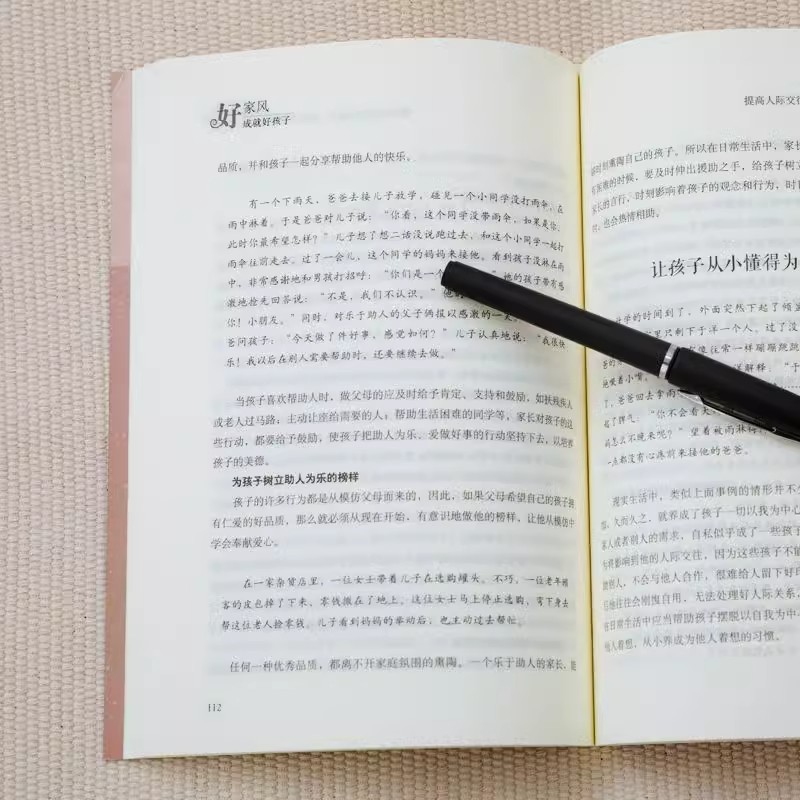 好家风
成就好孩子
品质，并和孩子一起分享帮助他人的快乐。
有一个下雨天，爸爸去接儿子放学，碰见一个小同学没打雨伞，在
雨中淋着。于是爸爸对儿子说：“你看，这个同学没带雨伞，如果是你，
此时你最希望怎样？”儿子想了想二话没说跑过去，和这个小同学一起打
雨伞往前走去。过了一会儿，这个同学的妈妈来接他。看到孩子没淋在雨
中，非常感谢地和男孩打招呼：“你们是一个 她的孩子带有感
激地抢先回答说：“不是，我们不认识。”
你！小朋友。”同时，对乐于助人的父子俩报以感激的一
爸问孩子：“今天做了件好事，感觉如何？”儿子认真地说：“我很快
乐！我以后在别人需要帮助时，还要继续去做。”
当孩子喜欢帮助人时，做父母的应及时给予肯定、支持和鼓励，如扶残疾人
或老人过马路；主动让座给需要的人；帮助生活困难的同学等，家长对孩子的这
些行动，都要给予鼓励，使孩子把助人为乐、爱做好事的行动坚持下去，以培养
孩子的美德。
为孩子树立助人为乐的榜样
孩子的许多行为都是从模仿父母而来的，因此，如果父母希望自己的孩子拥
有仁爱的好品质，那么就必须从现在开始，有意识地做他的榜样，让他从模仿中
学会奉献爱心。
在一家杂货店里，一位女士带着儿子在选购罐头。不巧，一位老年顾
客的皮包掉了下来、零钱撒在了地上。这位女士马上停止选购，弯下身去
帮这位老人捡零钱。儿子看到妈妈的举动后，也主动过去帮忙。
任何一种优秀品质，都离不开家庭氛围的熏陶。一个乐于助人的家长，能
112
提高人际交往
时刻熏陶自己的孩子。所以在日常生活中，家长
有困难的时候，要及时伸出援助之手，给孩子树立
家长的言行，时刻影响着孩子的观念和行为，时
时，也会热情相助。
让孩子从小懂得为
学的时间到了，外面突然下起了倾盆
里只剩下于洋一个人。过了没
像往常一样蹦蹦跳跳
地撅着小嘴。 解释：“于
了，爸爸回去拿雨
起了脾气：“你不会看天
妈怎么不晚来呢？”望着被雨淋
一点都没有心疼前来接他的爸爸。
现实生活中，类似上面事例的情形并不少
惯。久而久之，就养成了孩子一切以我为中心
家人或者别人的需求，自私似乎成了一些孩子
为将影响到他的人际交往，因为这些孩子不能
助别人，不会与他人合作，很难给人留下好印
且他往往会刚愎自用，无法处理好人际关系，
在日常生活中应当帮助孩子摆脱以自我为中心
他人着想，从小养成为他人着想的习惯。